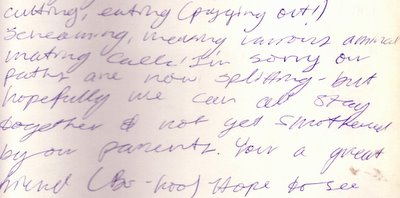 cutting, eating (pigging out!)
Screaming, making various animal
mating calls! I'm sorry our
paths are now splitting - but
hopefully we can all stay
together & not get smothered
by our parents. Your a great
friend (Boo-hoo) Hope to see